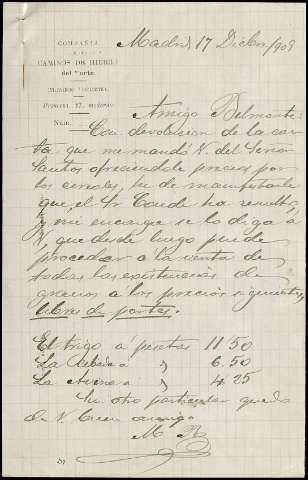 Madrid 17 Dicbre/909
COMPAÑÍA
CAMINOS DE HIERRO
del Norte.
Núm.
Amigo Belmonte:
Con devolucion de la car-
ta que me mandó V. del Señor
Santos ofreciendole precios por
los cereales, he de manifestarle
que, el Sr Conde ha resuelto,
y me encarga se lo diga á
V, que desde luego puede
proceder a la venta de
todas las existencias de
granos a los precios siguientes,
libres de portes.
El trigo á pesetas 11.50
La Cebada " 6.50
La Avena " 4.25
Sin otro particular queda
de V. buen amigo
M R